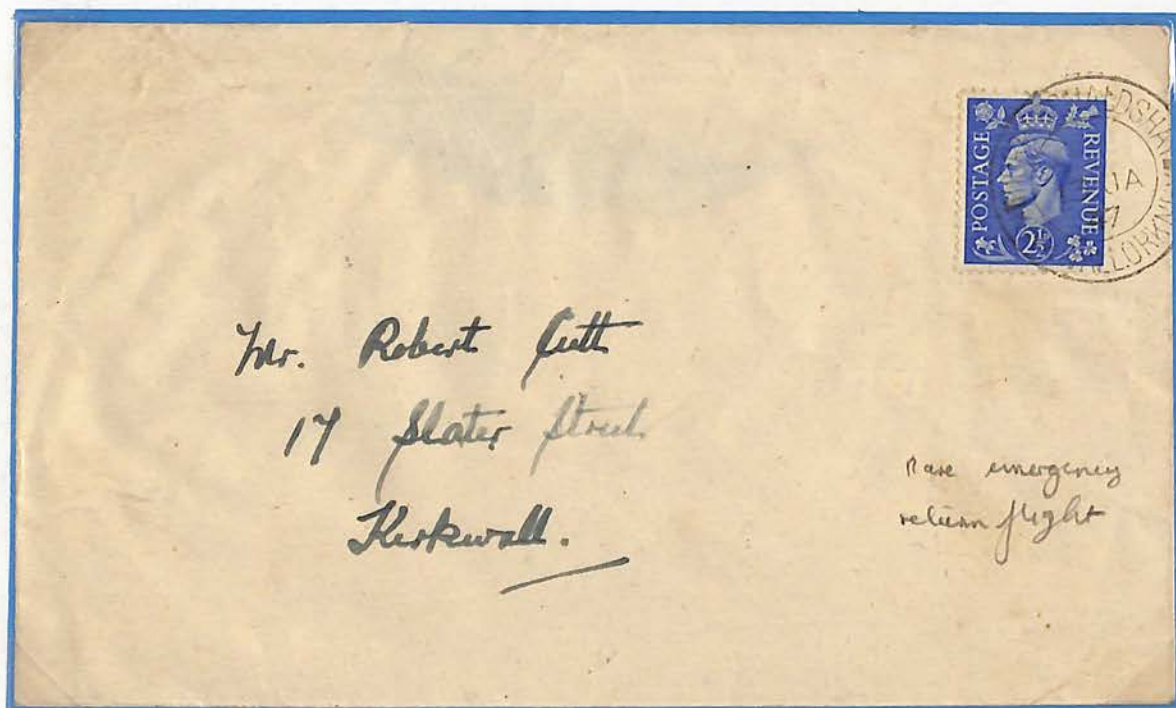 POSTAGE
REVENUE
2½
JA
Mr. Robert Cutt
17 Slater Street
Kirkwall.
Rare emergency
return flight